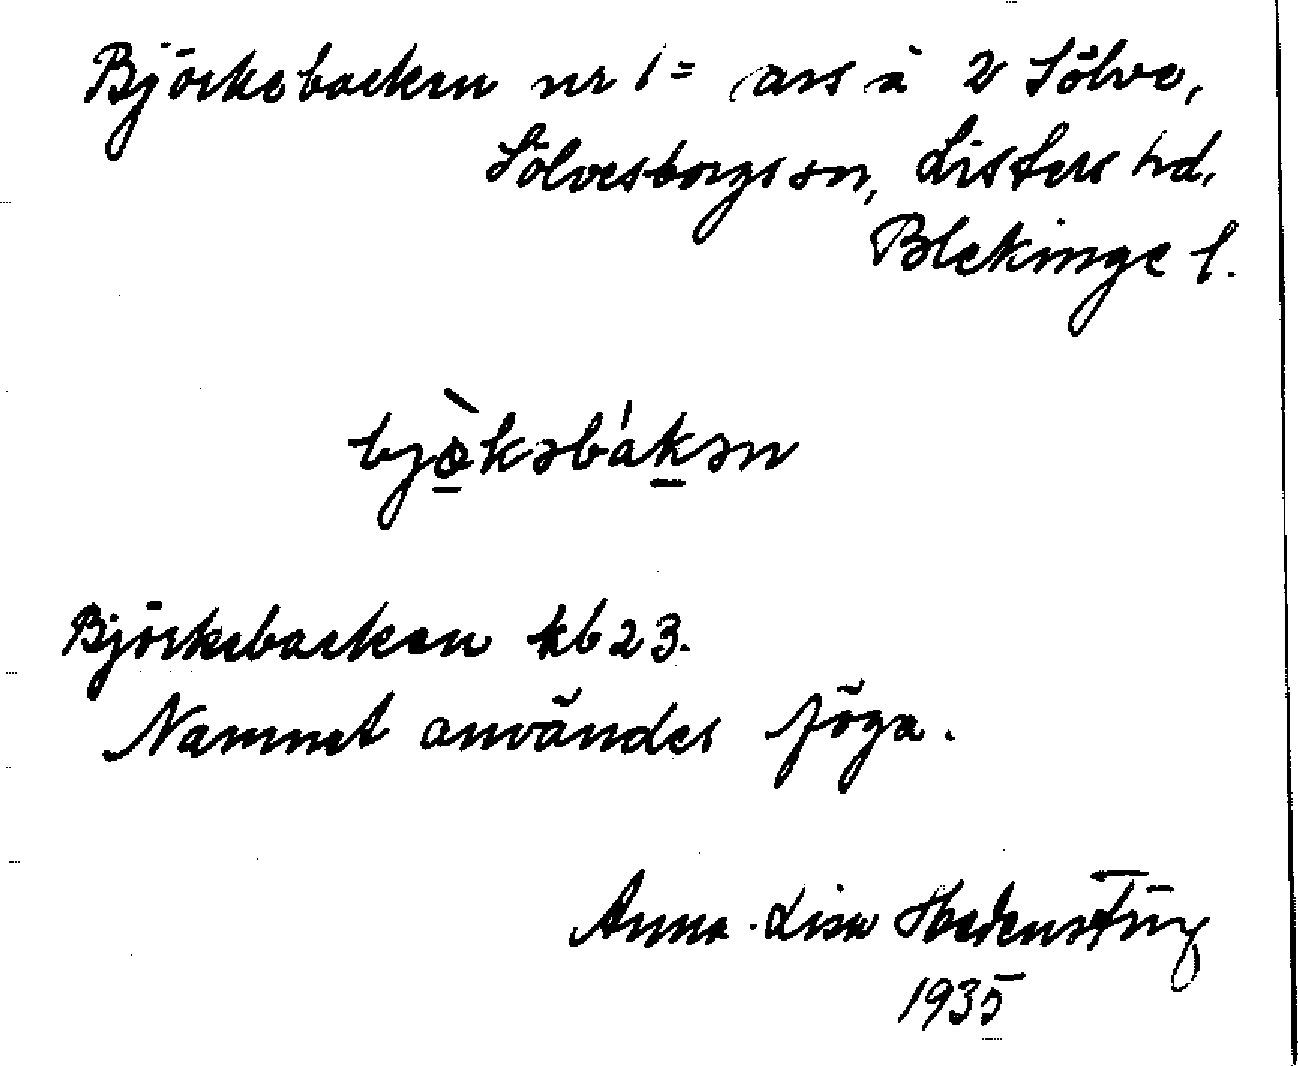 Björkebacken nr 1 = avs å 2 Sölve,
Sölvesborgs sn, Listers hd,
Blekinge l.
bjø̱̀kəbáḵən
Björkebacken kb 23.
Namnet användes föga.
Anna-Lisa
1935